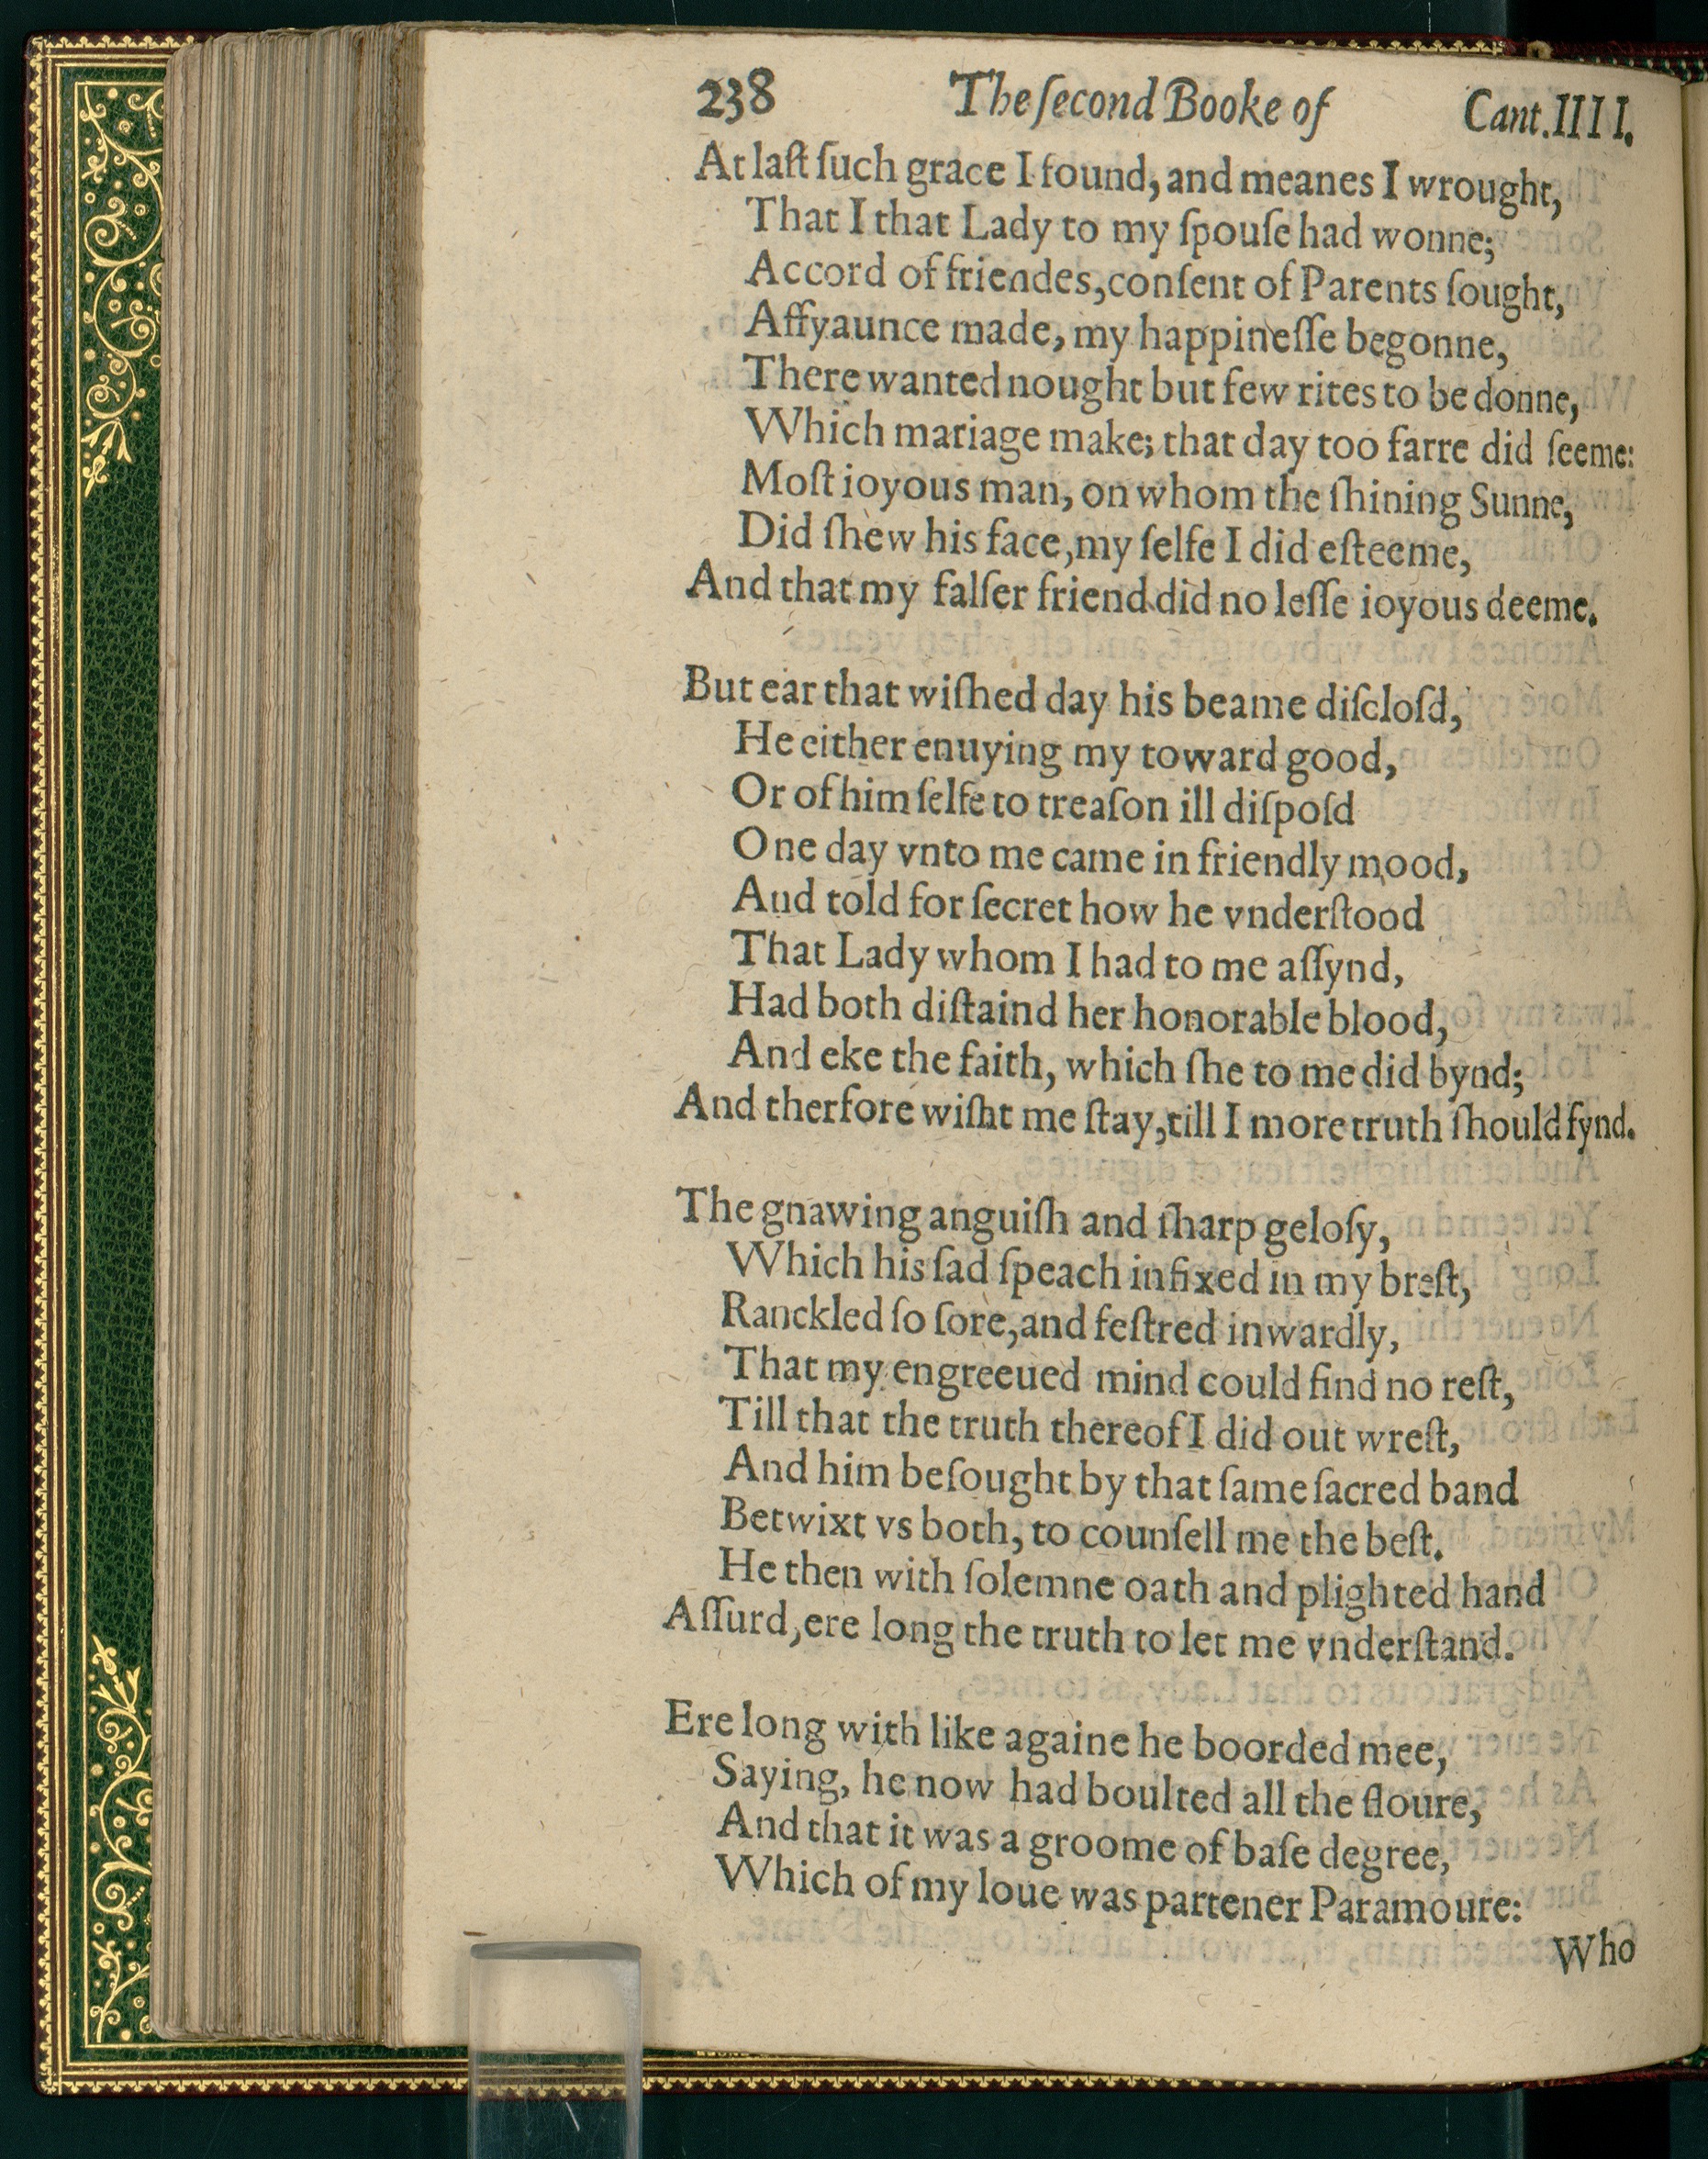 238 The ſecond Booke of Cant.IIII.
At laſt ſuch grace I found, and meanes I wrought,
That I that Lady to my ſpouſe had wonne;
Accord of friendes, conſent of Parents ſought,
Affyaunce made, my happineſſe begonne,
There wanted nought but few rites to be donne,
Which mariage make; that day too farre did ſeeme:
Moſt ioyous man, on whom the ſhining Sunne,
Did ſhew his face, my ſelfe I did eſteeme,
And that my falſer friend did no leſſe ioyous deeme.
But ear that wiſhed day his beame diſcloſd,
He either enuying my toward good,
Or of him ſelfe to treaſon ill diſpoſd
One day vnto me came in friendly mood,
And told for ſecret how he vnderſtood
That Lady whom I had to me aſſynd,
Had both diſtaind her honorable blood,
And eke the faith, which ſhe to me did bynd;
And therfore wiſht me ſtay, till I more truth ſhould fynd.
The gnawing anguiſh and ſharp geloſy,
Which his ſad ſpeach infixed in my breſt,
Ranckled ſo ſore, and feſtred inwardly,
That my engreeued mind could find no reſt,
Till that the truth thereof I did out wreſt,
And him beſought by that ſame ſacred band
Betwixt vs both, to counſell me the beſt.
He then with ſolemne oath and plighted hand
Aſſurd, ere long the truth to let me vnderſtand.
Ere long with like againe he boorded mee,
Saying, he now had boulted all the floure,
And that it was a groome of baſe degree,
Which of my loue was partener Paramoure:
Who